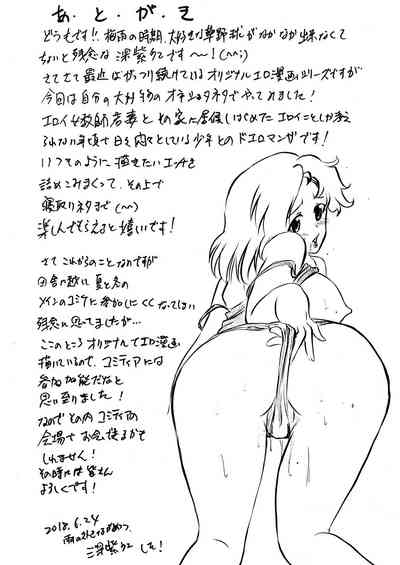 あ・と・が・き
どうもです!! 梅雨の時期、大好きな草野球がなかなか出来なくて
ちょいと残念な 深紫タニです〜! (^^;)
さてさて最近はがっつり続けているオリジナルエロ漫画シリーズですが
今回は自分の大好物のオネショタネタでやってみました!
エロイ女教師若妻とその家に居候しはじめたエロイことしか考え
られない年頃で日々悶々としている少年とのドエロマンガです!
いつものように描きたいエッチを
詰めこみまくって、その上で
寝取りネタまで (^^)
楽しんでもらえると嬉しいです!
さてこれからのことなのですが
夏と冬の
メインのコミケに参加しにくくなってしまい
残念に思ってましたが…
ここのところオリジナルでエロ漫画
描いているので、コミティアには
参加可能だなと
思い至りました!
なのでその内コミティアの
会場でお会い出来るかも
しれません!
その時には皆さん
よろしくです!
2018.6.24
深紫タニ でした!